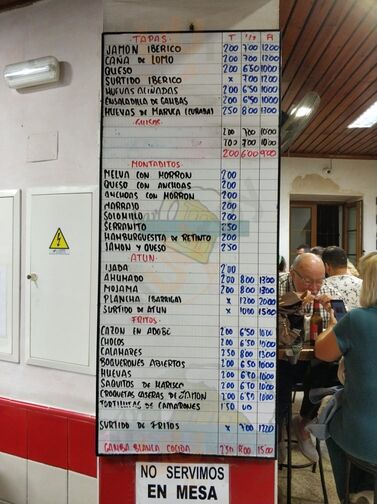 TAPAS T 1/2 R
JAMON IBERICO 200 700 1200
CAÑA DE LOMO 200 700 1200
QUESO 200 650 1000
SURTIDO IBERICO x 700 1200
HUEVAS ALIÑADAS 200 650 1000
ENSALADILLA DE GAMBAS 200 650 1000
HUEVAS DE MARUCA (CURADA) 250 800 1300
GUISOS
200 700 1000
200 700 1000
200 600 900
MONTADITOS
MELVA CON MORRON 200
QUESO CON ANCHOAS 200
ANCHOAS CON MORRON 200
MARRAJO 200
SOLOMILLO 200
SERRANITO 250
HAMBURGUESITA DE RETINTO 200
JAMON Y QUESO 250
ATUN
IJADA 200
AHUMADO 200 800 1300
MOJAMA 200 800 1300
PLANCHA (BARRIGA) x 1200 2000
SURTIDO DE ATUN x 1000 1500
FRITOS
CAZON EN ADOBO 200 650 1000
CHOCOS 200 650 1000
CALAMARES 250 800 1300
BOQUERONES ABIERTOS 200 650 1000
HUEVAS 200 650 1000
SAQUITOS DE MARISCO 200 650 1000
CROQUETAS CASERAS DE JAMON 200 650 1000
TORTILLITAS DE CAMARONES 150
SURTIDO DE FRITOS x 900 1200
GAMBA BLANCA COCIDA 250 800 1500
NO SERVIMOS
EN MESA